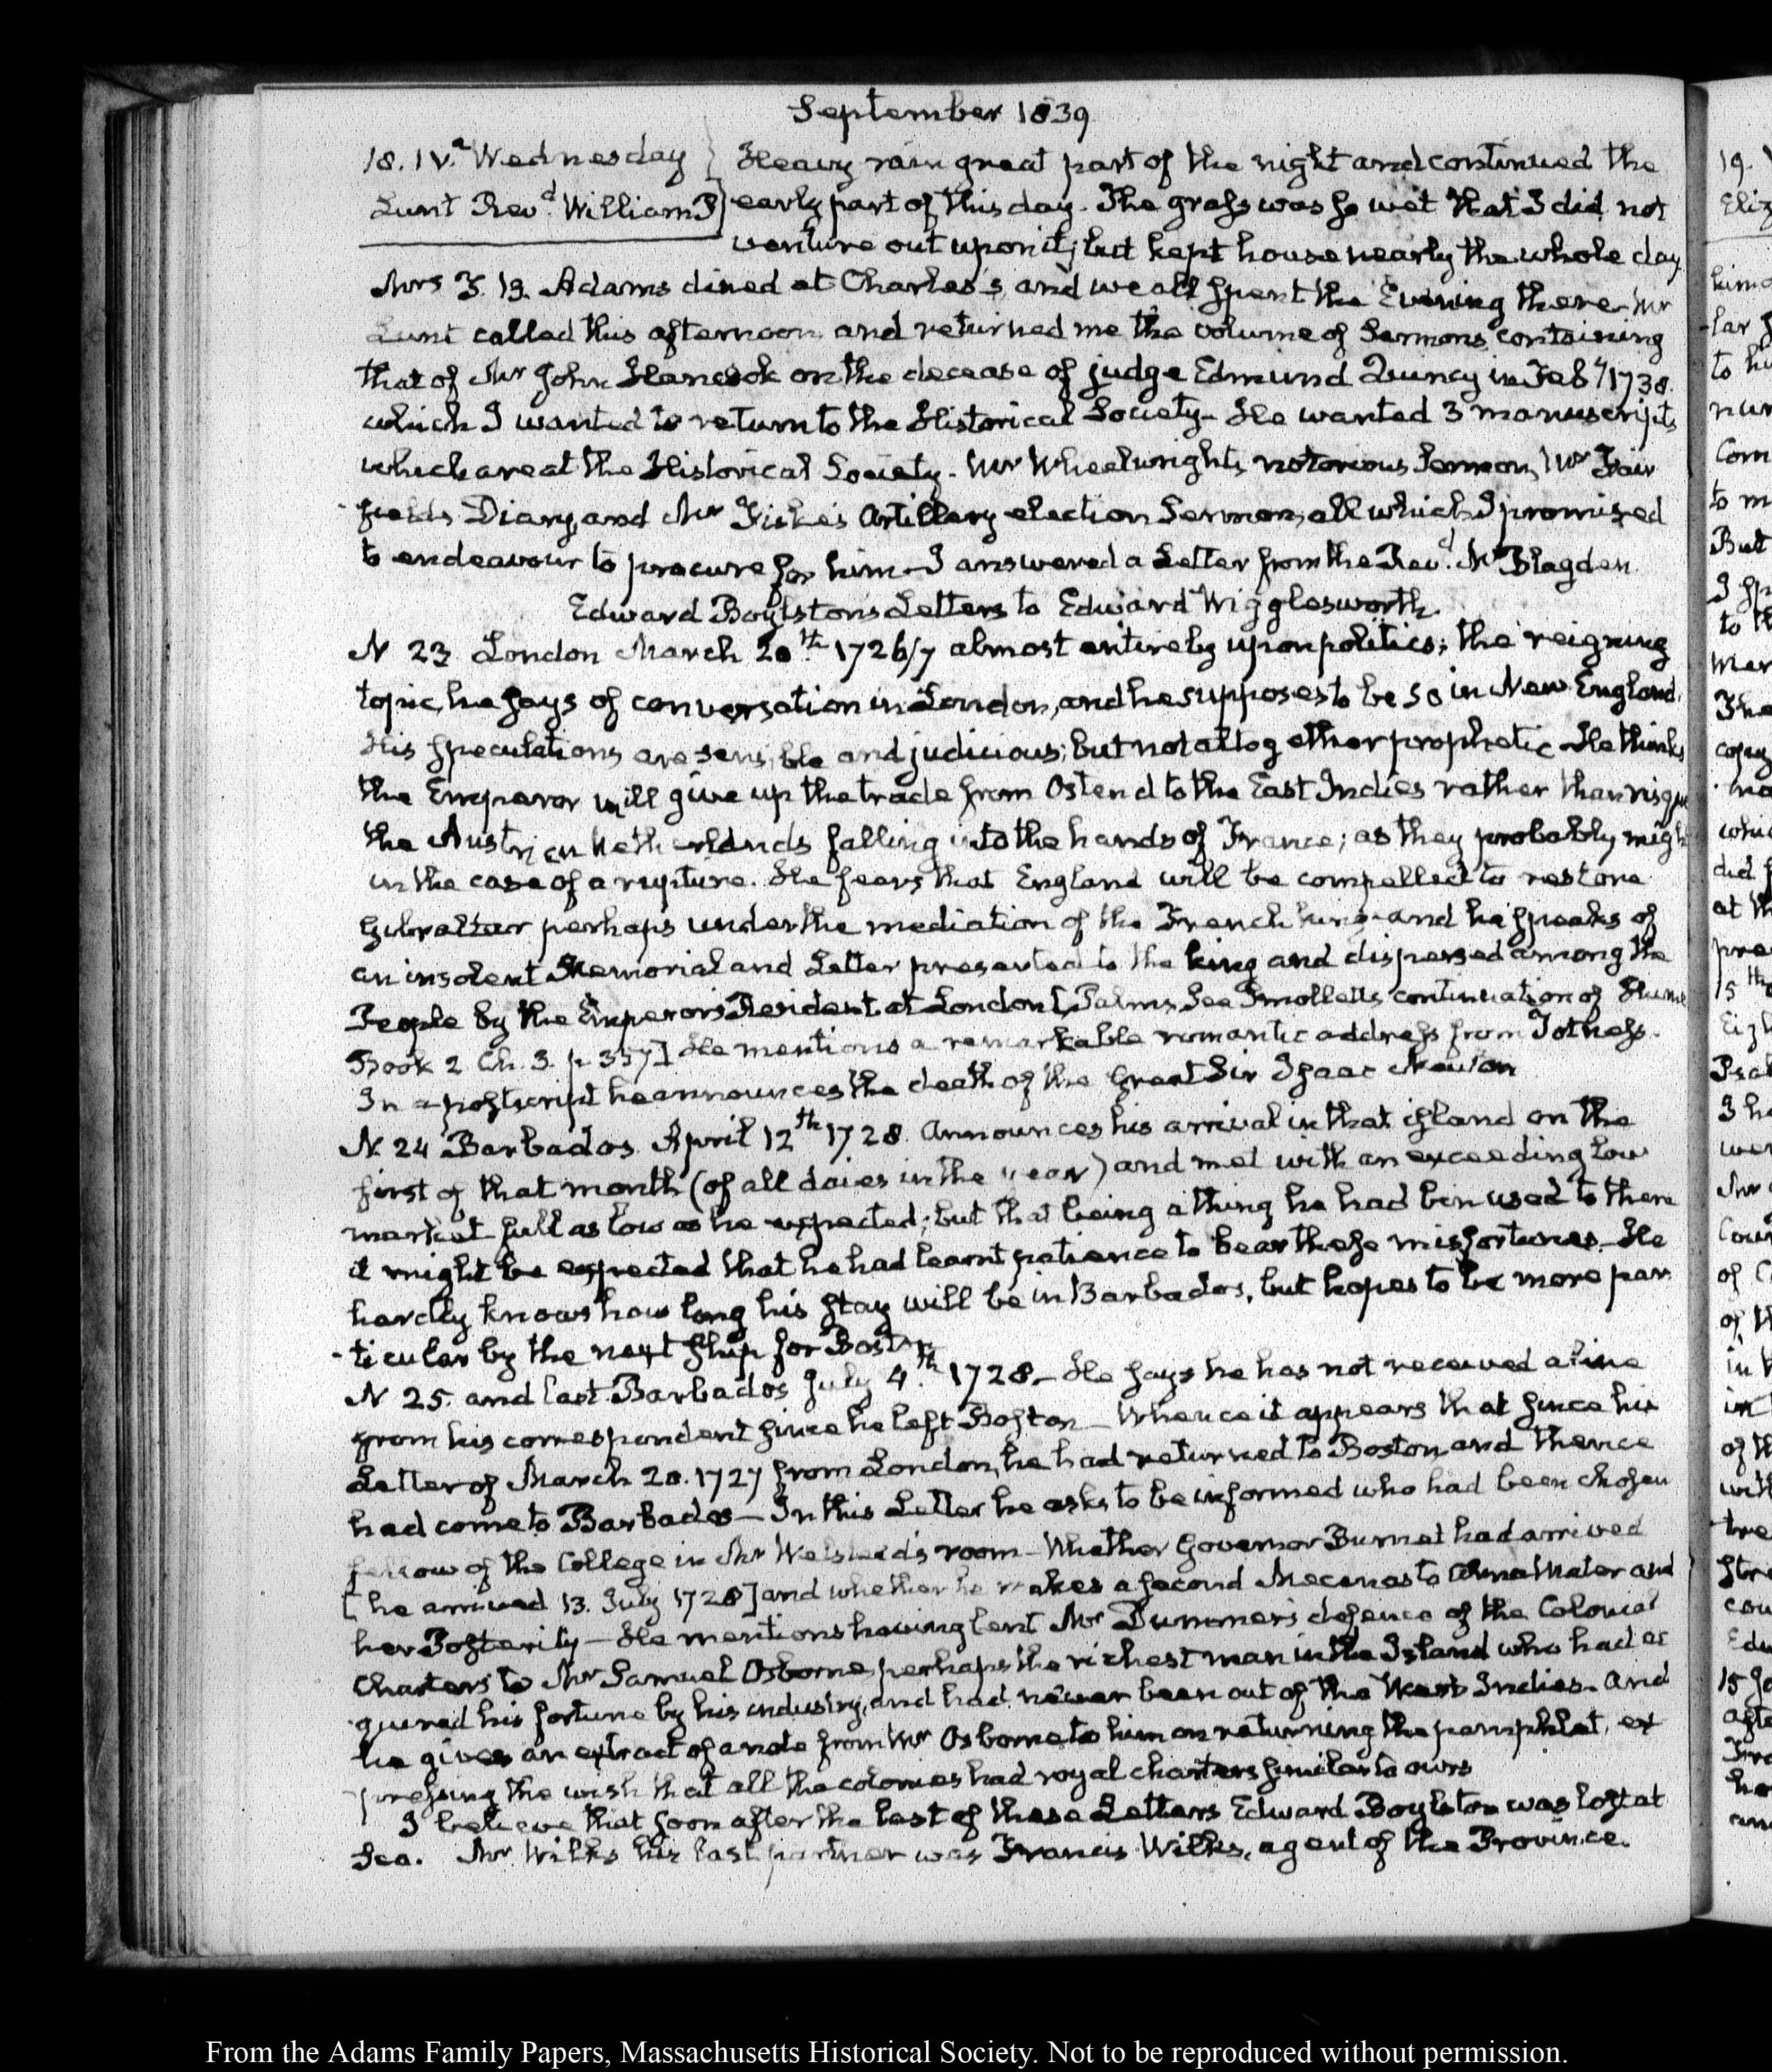 September 1839
18. IV.a Wednesday } Heavy rain great part of the night and continued the
Lunt Revd. William P } early part of this day. The grass was so wet that I did not
venture out upon it; but kept house nearly the whole day
Mrs J. B. Adams dined at Charles's, and we all spent the Evening there. Mr
Lunt called this afternoon and returned me the volume of Sermons containing
that of Mr John Hancock on the decease of judge Edmund Quincy in Feby 1738.
which I wanted to return to the Historical Society. He wanted 3 manuscripts
which are at the Historical Society. Mr Wheelwright's notorious Sermon, Mr Fair
-field's Diary, and Mr Fiske's Artillery election Sermon, all which I promised
to endeavour to procure for him. I answered a Letter from the Revd. Mr Blagden
Edward Boylston's Letters to Edward Wigglesworth.
N 23 London March 20.th 1726/7 almost entirely upon politics; the reigning
topic, he says of conversation in London, and he supposes to be so in New England.
His speculations are sensible and judicious; but not altogether prophetic. He thinks
the Emperor will give up the trade from Ostend to the East Indies rather than risque
the Austrian Netherlands falling into the hands of France; as they probably might
in the case of a rupture. He fears that England will be compelled to restore
Gibraltar perhaps under the mediation of the French king—and he speaks of
an insolent Memorial and Letter presented to the king and dispersed among the
People by the Emperor's Resident at London [Palms, See Smollett's continuation of Hume
Book 2. Ch. 3. p 357] He mentions a remarkable romantic address from Totness.
In a postscript he announces the death of the Great Sir Isaac Newton
N. 24 Barbados. April 12th 1728. Announces his arrival in that island on the
first of that month (of all daies in the year) and met with an exceeding low
market full as low as he expected; but that being a thing he had been used to there
it might be expected that he had learnt patience to bear these misfortunes. He
hardly knows how long his stay will be in Barbados, but hopes to be more par
-ticular by the next ship for Boston
N 25. and last Barbados July 4.th 1728.— He says he has not received a line
from his correspondent since he left Boston— Whence it appears that since his
Letter of March 20. 1727 from London, he had returned to Boston, and thence
had come to Barbados— In this Letter he asks to be informed who had been chosen
fellow of the College in Mr Welsteed's room— Whether Governor Burnet had arrived
[he arrived 13. July 1728] and whether he makes a second Mecenas to Alma Mater and
her Posterity— He mentions having lent Mr Dummer's defence of the Colonial
Charters to Mr Samuel Osborne, perhaps the richest man in the Island who had ac
-quired his fortune by his industry, and had never been out of the West Indies. And
he gives an extract of a note from Mr Osborne to him on returning the pamphlet, ex
-pressing the wish that all the colonies had royal charters similar to ours
I believe that soon after the last of these Letters Edward Boylston was lost at
Sea. Mr Wilks his last partner was Francis Wilks, agent of the Province.
From the Adams Family Papers, Massachusetts Historical Society. Not to be reproduced without permission.